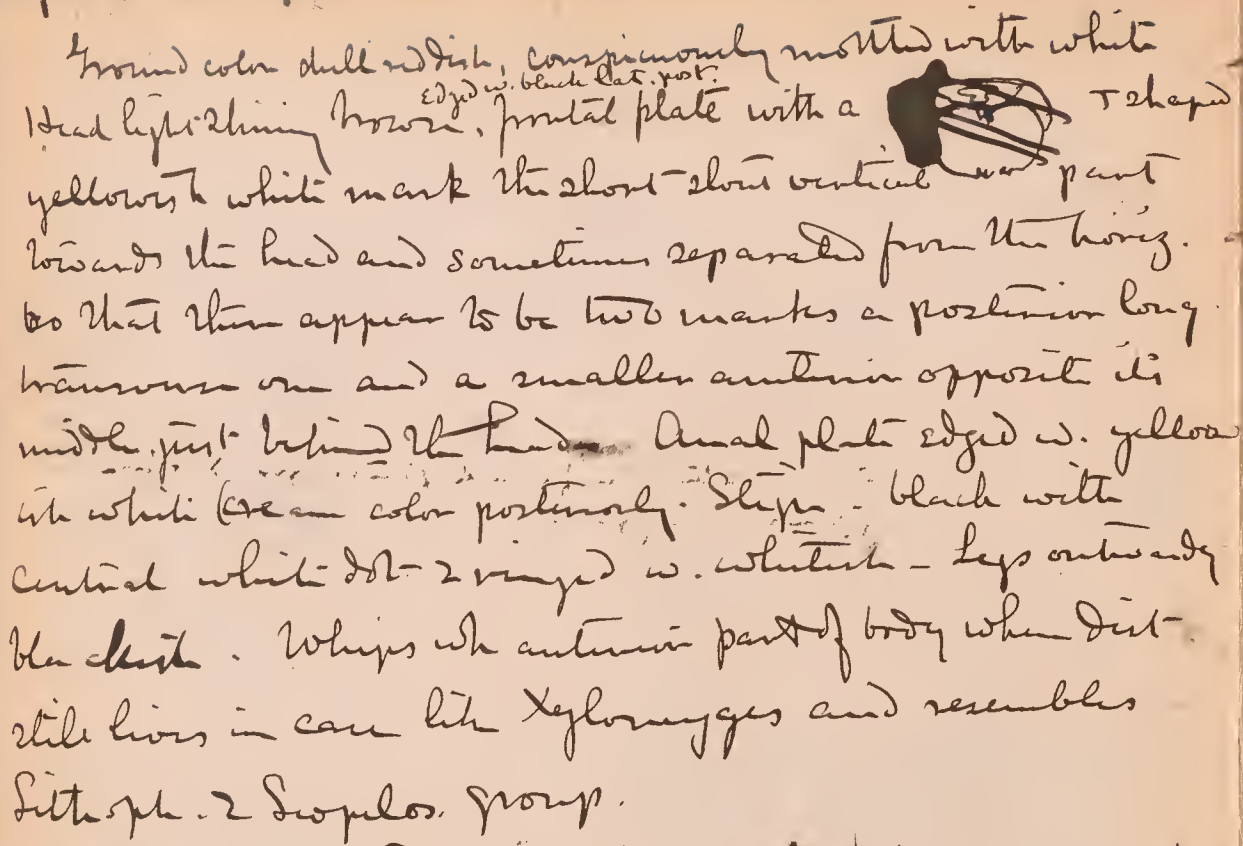 Ground color dull reddish, conspicuously mottled with white
edged w. black lat. post.
Head light shining brown, frontal plate with a T shaped
yellowish white mark the short stout vertical part
towards the head and sometimes separated from the horiz.
so that there appear to be two marks a posterior long
transverse one and a smaller anterior opposite its
middle just behind the head Anal plate edged w. yellow
ish white (cream color posteriorly. Stig. black with
central white dot & ringed w. whitish - Legs outwardly
blackish. Whips anterior part of body when dist.
still lives in case like Xylomyges and resembles
Lithoph. & Scopelos. group.